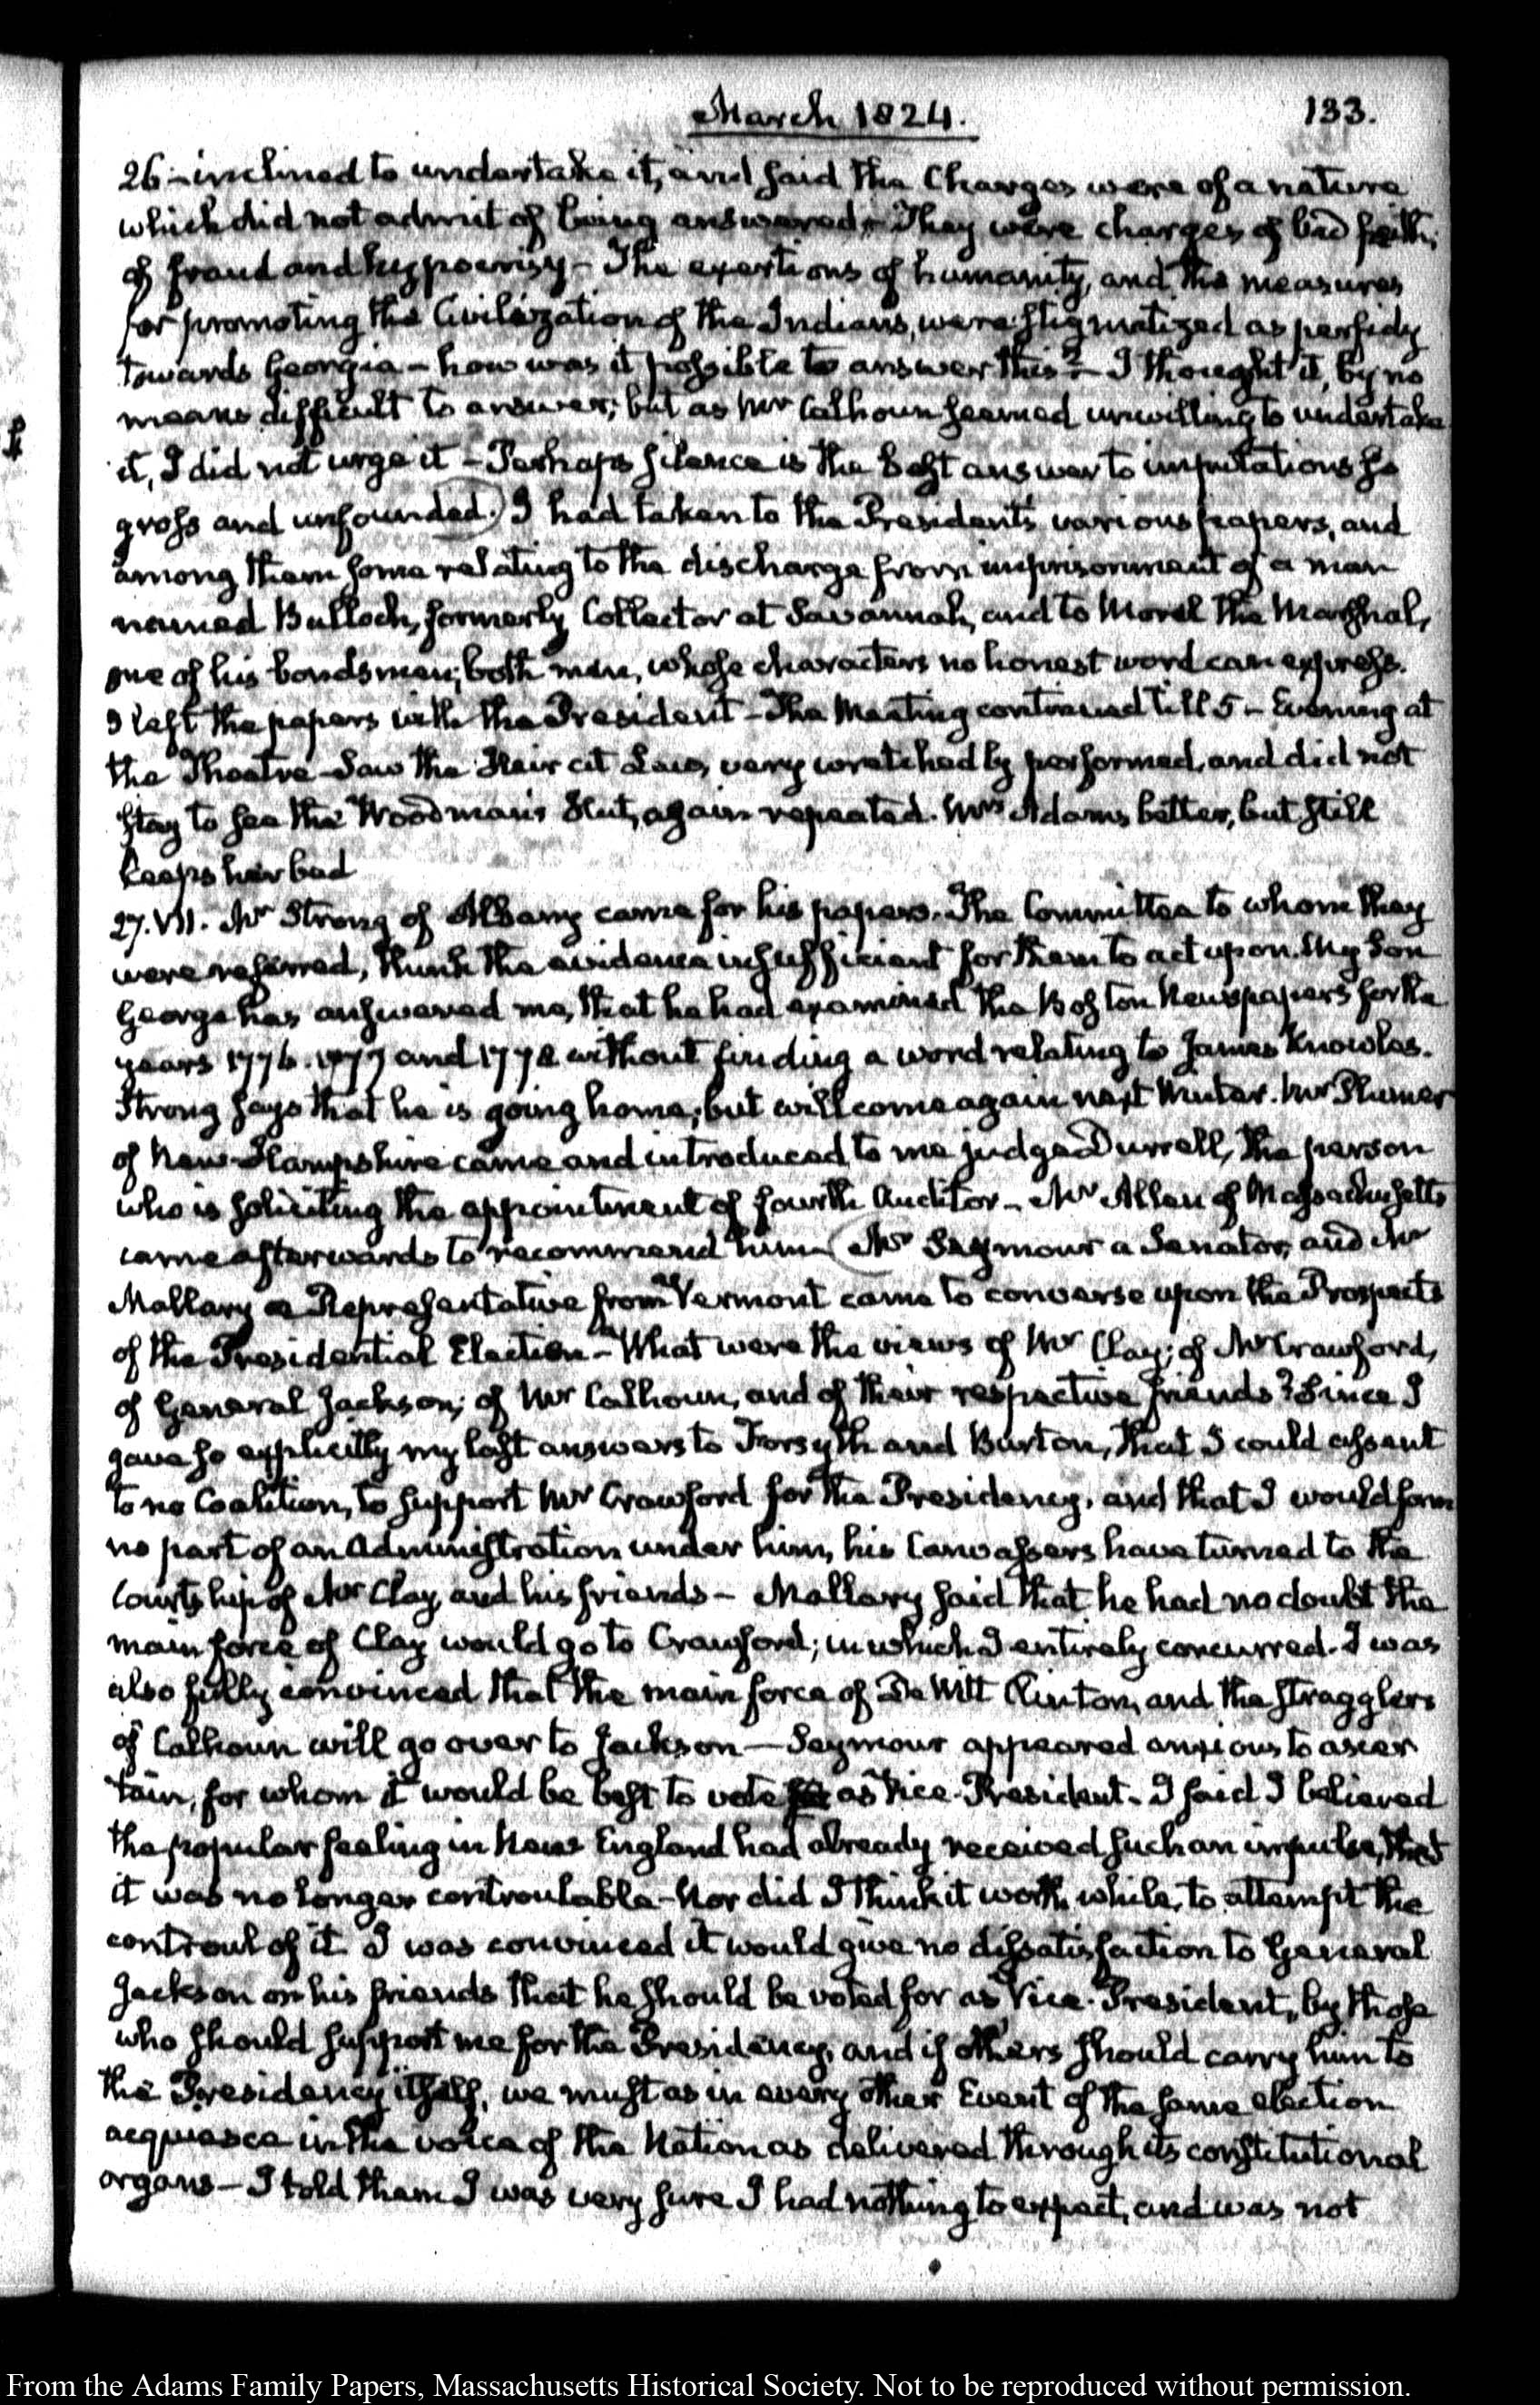 March 1824.
133.
26 - inclined to undertake it, and said the Charges were of a nature
which did not admit of being answered - They were charges of bad faith,
of fraud and hypocrisy - The exertions of humanity, and the measures
for promoting the Civilization of the Indians, were stigmatized as perfidy
towards Georgia - how was it possible to answer this? - I thought it, by no
means difficult to answer; but as Mr Calhoun seemed unwilling to undertake
it, I did not urge it - Perhaps silence is the best answer to imputations so
gross and unfounded.) I had taken to the President's various papers, and
among them some relating to the discharge from imprisonment of a man
named Bulloch, formerly Collector at Savannah, and to Morel the Marshal,
one of his bondsmen; both men, whose characters no honest word can express.
I left the papers with the President - The Meeting continued till 5 - Evening at
the Theatre - Saw the Heir at Law, very wretchedly performed, and did not
stay to see the Woodman's Hut, again repeated. Mrs Adams better, but still
keeps her bed
27. VII. Mr Strong of Albany came for his papers. The Committee to whom they
were referred, think the evidence insufficient for them to act upon. My Son
George has answered me, that he had examined the Boston Newspapers for the
years 1776. 1777 and 1778 without finding a word relating to James Knowles.
Strong says that he is going home; but will come again next Winter. Mr Plumer
of New-Hampshire came and introduced to me judge Durrell, the person
who is soliciting the appointment of fourth Auditor - Mr Allen of Massachusetts
came afterwards to recommend him (Mr Seymour a Senator, and Mr
Mallary a Representative from Vermont came to converse upon the Prospects
of the Presidential Election - What were the views of Mr Clay; of Mr Crawford,
of General Jackson; of Mr Calhoun, and of their respective friends? Since I
gave so explicitly my last answers to Forsyth and Barton, that I could assent
to no Coalition, to support Mr Crawford for the Presidency, and that I would form
no part of an Administration under him, his Canvassers have turned to the
Courtship of Mr Clay, and his friends - Mallary said that he had no doubt the
main force of Clay would go to Crawford; in which I entirely concurred. I was
also fully convinced that the main force of De Witt Clinton, and the stragglers
of Calhoun will go over to Jackson - Seymour appeared anxious to ascer
tain, for whom it would be best to vote as Vice-President - I said I believed
the popular feeling in New England had already received such an impulse, that
it was no longer controulable - Nor did I think it worth while, to attempt the
controul of it. I was convinced it would give no dissatisfaction to General
Jackson or his friends that he should be voted for as Vice-President, by those
who should support me for the Presidency, and if others should carry him to
the Presidency itself, we must as in every other Event of the same election
acquiesce in the voice of the Nation as delivered through its constitutional
organs - I told them I was very sure I had nothing to expect, and was not
From the Adams Family Papers, Massachusetts Historical Society. Not to be reproduced without permission.